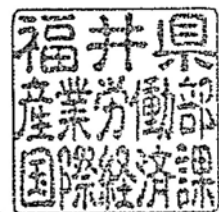 福井県
産業労働部
国際経済課